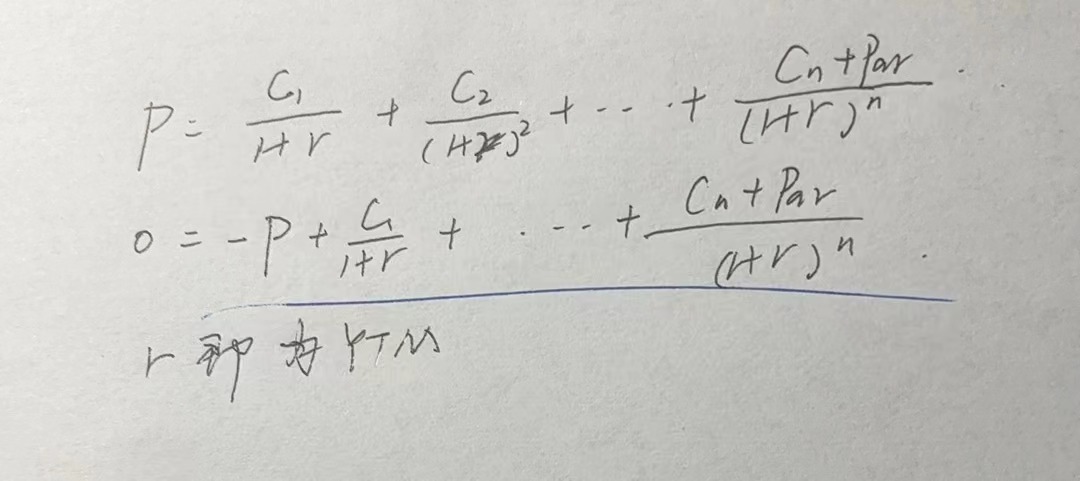 P = C₁/(1+r) + C₂/(1+r)² + ... + (Cn + Par)/(1+r)ⁿ.
0 = -P + C₁/(1+r) + ... + (Cn + Par)/(1+r)ⁿ.
r 即为 YTM